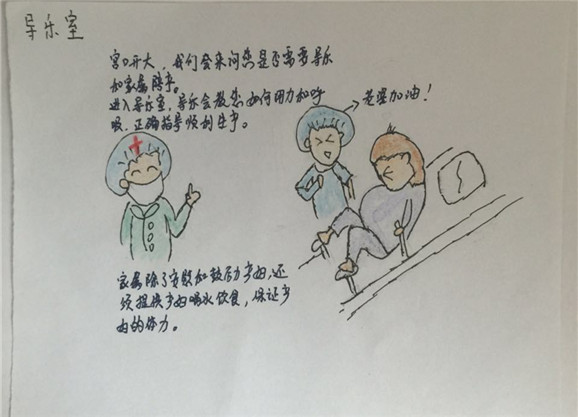 导乐室
宫口开大，我们会来问您是否需要导乐
和家属陪产。
进入导乐室，导乐会教您如何用力和呼
吸，正确指导顺利生产。
老婆加油！
家属除了安慰和鼓励产妇，还
须提供产妇喝水饮食，保证产
妇的体力。